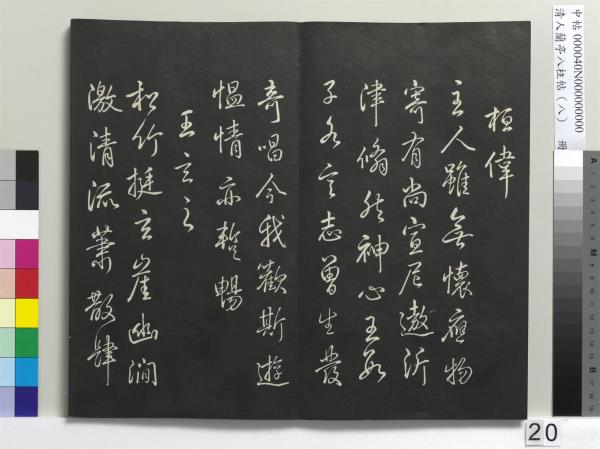 桓偉
主人雖無懷應物
寄有尚宣尼遨沂
津翛然神心王數
子各言志曾生發
奇唱今我歡斯遊
愠情亦蹔暢
王玄之
松竹挺玄崖幽澗
激清流蕭散肆
中帖 000040N000000000 冊
清人蘭亭八柱帖（八）
20